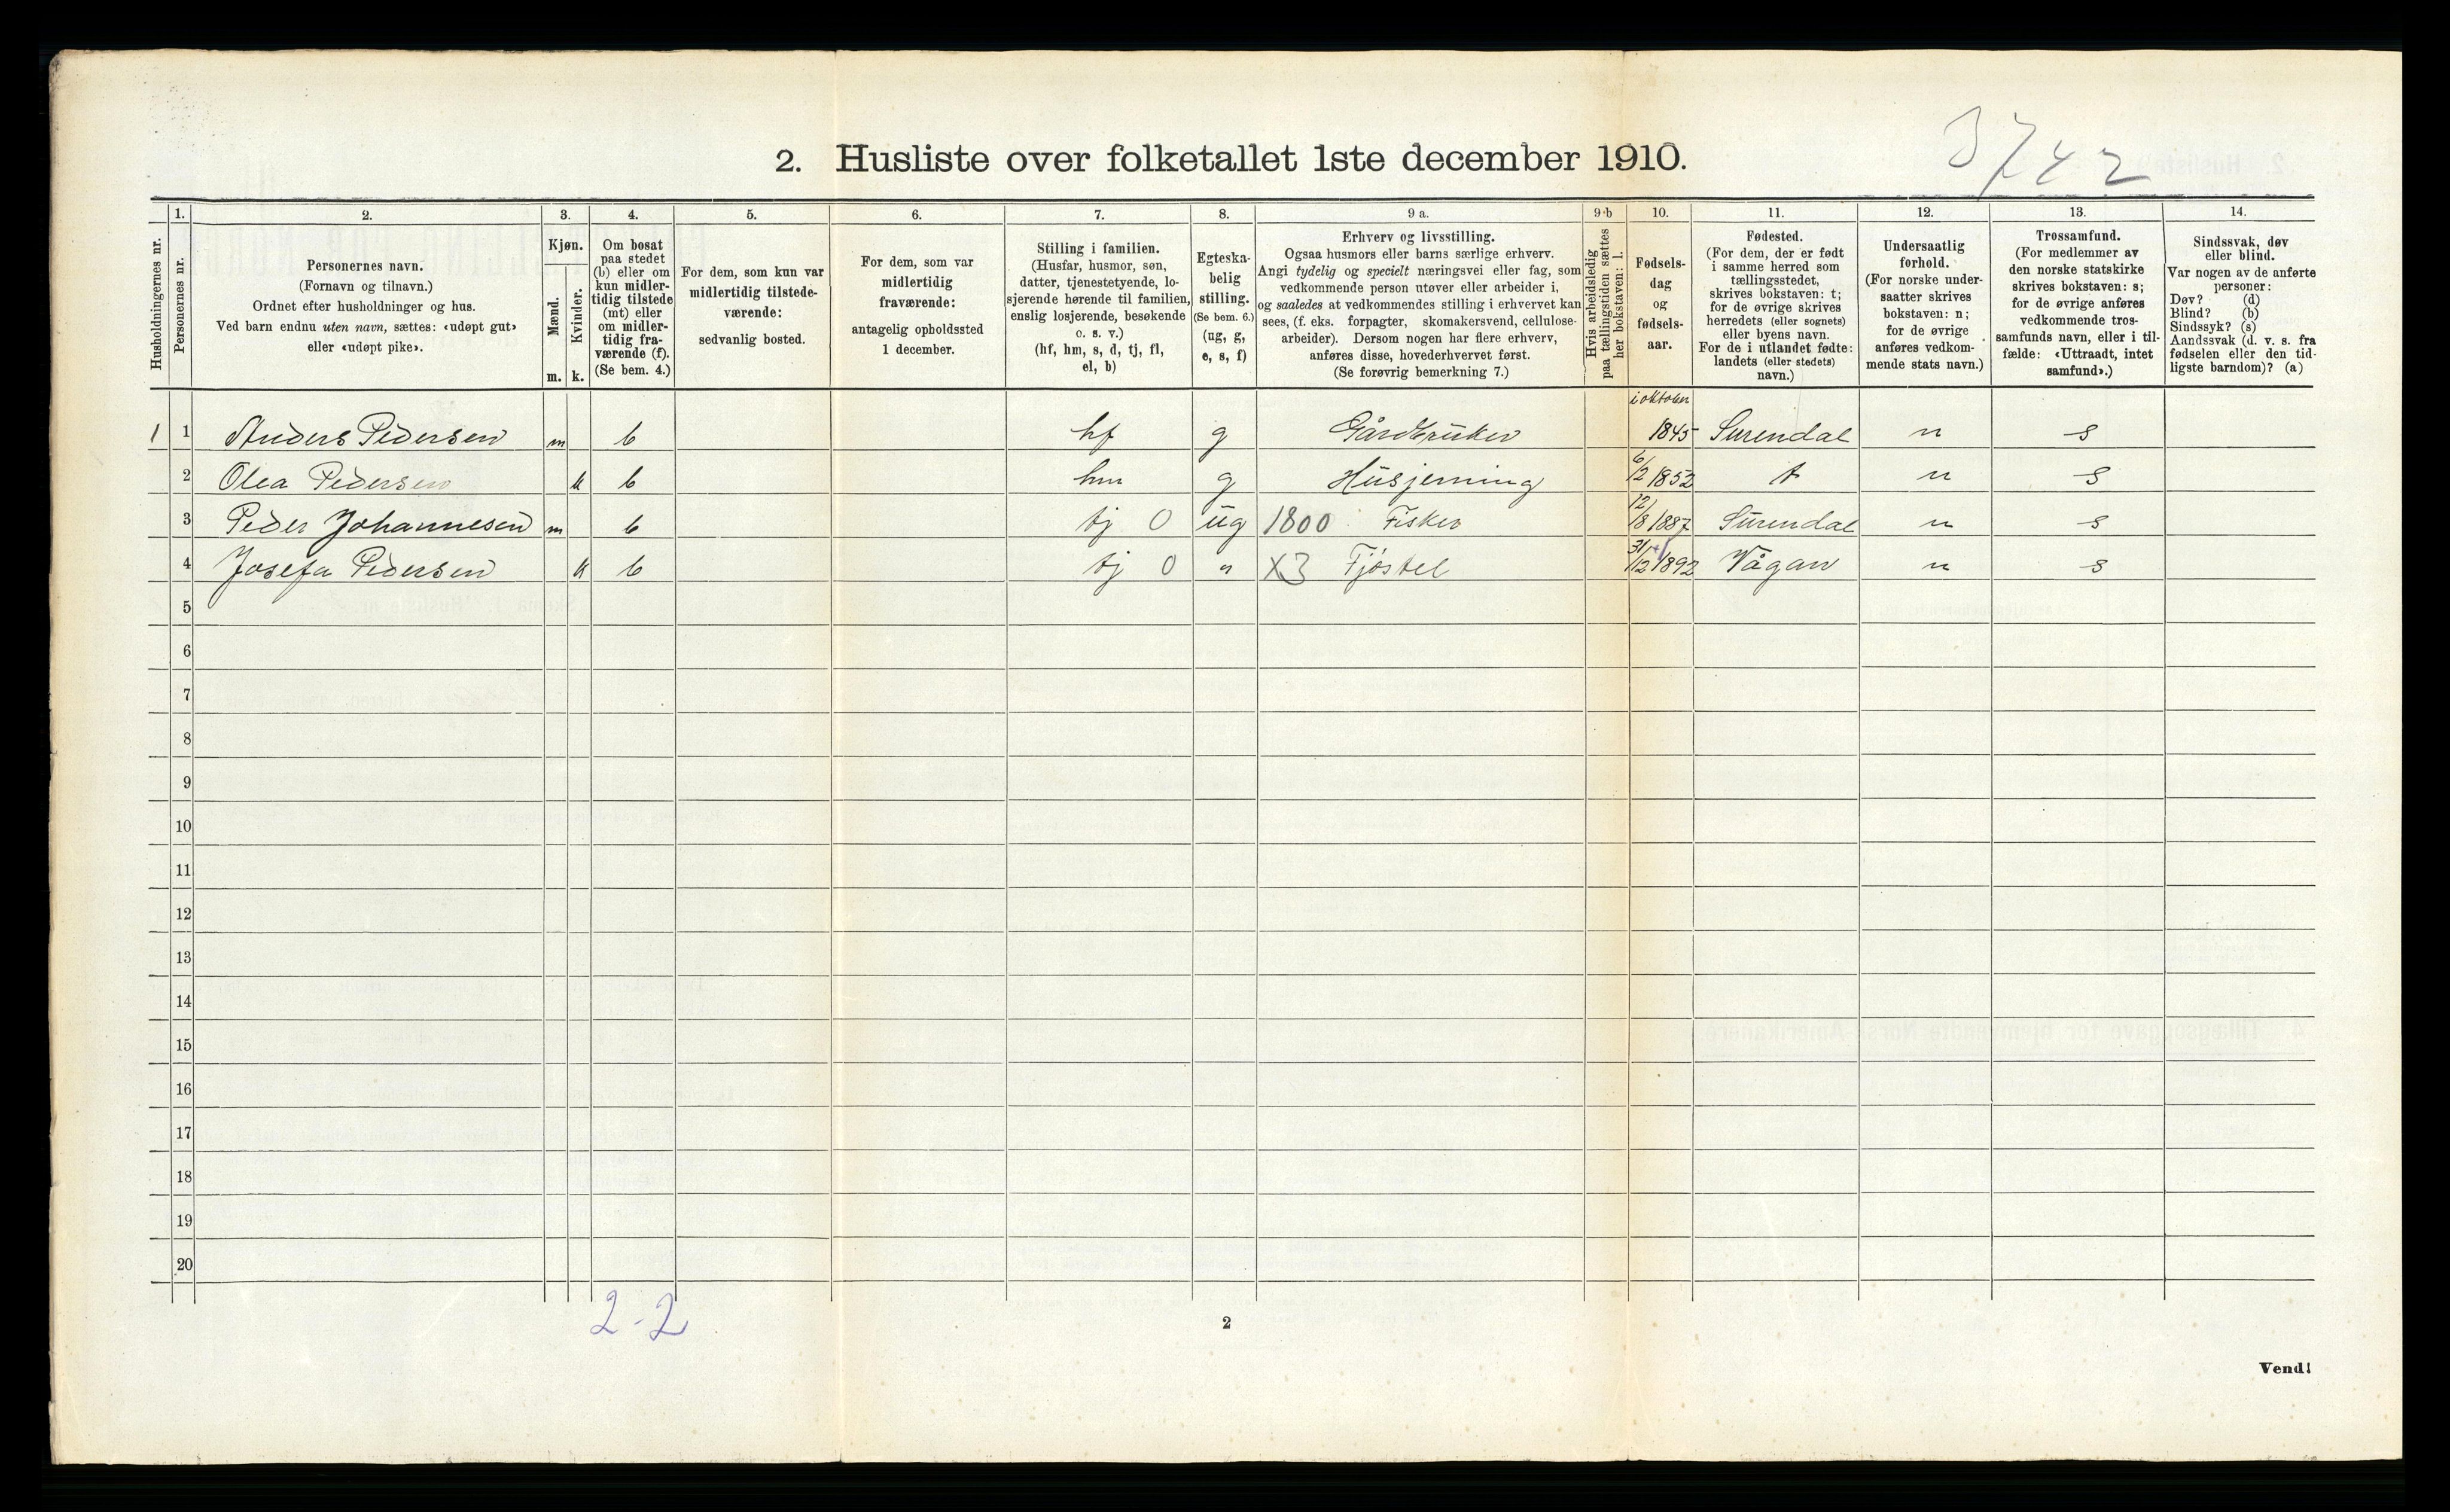 2. Husliste over folketallet 1ste december 1910.
3/742
Husholdningernes nr.
1.
Personernes nr.
2.
Personernes navn.
(Fornavn og tilnavn.)
Ordnet efter husholdninger og hus.
Ved barn endnu uten navn, sættes: «udøpt gut»
eller «udøpt pike».
3.
Kjøn.
Mænd.
Kvinder.
m. k.
4.
Om bosat
paa stedet
(b) eller om
kun midler-
tidig tilstede
(mt) eller
om midler-
tidig fra-
værende (f).
(Se bem. 4.)
5.
For dem, som kun var
midlertidig tilstede-
værende:
sedvanlig bosted.
6.
For dem, som var
midlertidig
fraværende:
antagelig opholdssted
1 december.
7.
Stilling i familien.
(Husfar, husmor, søn,
datter, tjenestetyende, lo-
sjerende hørende til familien,
enslig losjerende, besøkende
o. s. v.)
(hf, hm, s, d, tj, fl,
el, b)
8.
Egteska-
belig
stilling.
(Se bem. 6.)
(ug, g,
e, s, f)
9 a.
Erhverv og livsstilling.
Ogsaa husmors eller barns særlige erhverv.
Angi tydelig og specielt næringsvei eller fag, som
vedkommende person utøver eller arbeider i,
og saaledes at vedkommendes stilling i erhvervet kan
sees, (f. eks. forpagter, skomakersvend, cellulose-
arbeider). Dersom nogen har flere erhverv,
anføres disse, hovederhvervet først.
(Se forøvrig bemerkning 7.)
9 b
Hvis arbeidsledig
paa tællingstiden sættes
her bokstaven: l.
10.
Fødsels-
dag
og
fødsels-
aar.
11.
Fødested.
(For dem, der er født
i samme herred som
tællingsstedet,
skrives bokstaven: t;
for de øvrige skrives
herredets (eller sognets)
eller byens navn.
For de i utlandet fødte:
landets (eller stedets)
navn.)
12.
Undersaatlig
forhold.
(For norske under-
saatter skrives
bokstaven: n;
for de øvrige
anføres vedkom-
mende stats navn.)
13.
Trossamfund.
(For medlemmer av
den norske statskirke
skrives bokstaven: s;
for de øvrige anføres
vedkommende tros-
samfunds navn, eller i til-
fælde: «Uttraadt, intet
samfund».)
14.
Sindssvak, døv
eller blind.
Var nogen av de anførte
personer:
Døv? (d)
Blind? (b)
Sindssyk? (s)
Aandssvak (d. v. s. fra
fødselen eller den tid-
ligste barndom)? (a)
1 1 Anders Pedersen m b hf g Gårdbruker i oktober 1845 Surendal n s
2 Olea Pedersen k b hm g Husjerning 6/2 1852 t n s
3 Peder Johannesen m b tj 0 ug 1800 Fisker 12/8 1887 Surendal n s
4 Josefa Pedersen k b tj 0 " X3 Fjøstel 31/12 1892 Vågan n s
5
6
7
8
9
10
11
12
13
14
15
16
17
18
19
20
2-2
2
Vend!